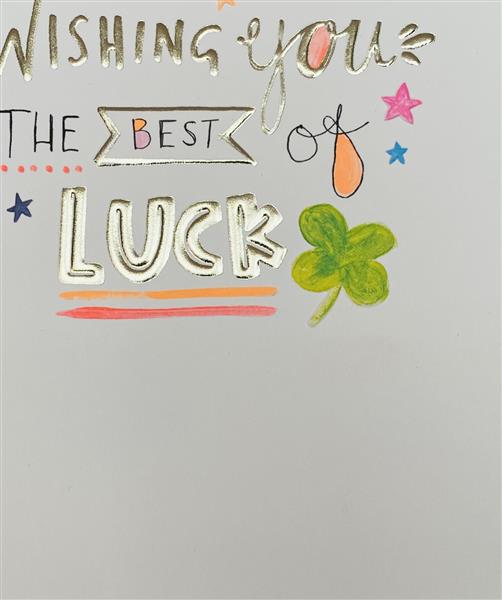 WISHING you
THE BEST of
LUCK